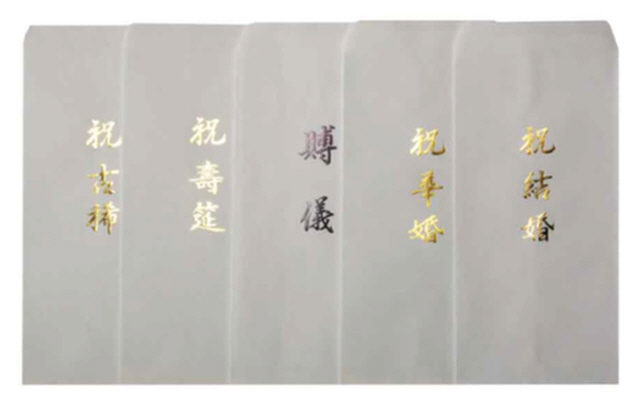 祝古稀
祝壽筵
賻儀
祝華婚
祝結婚